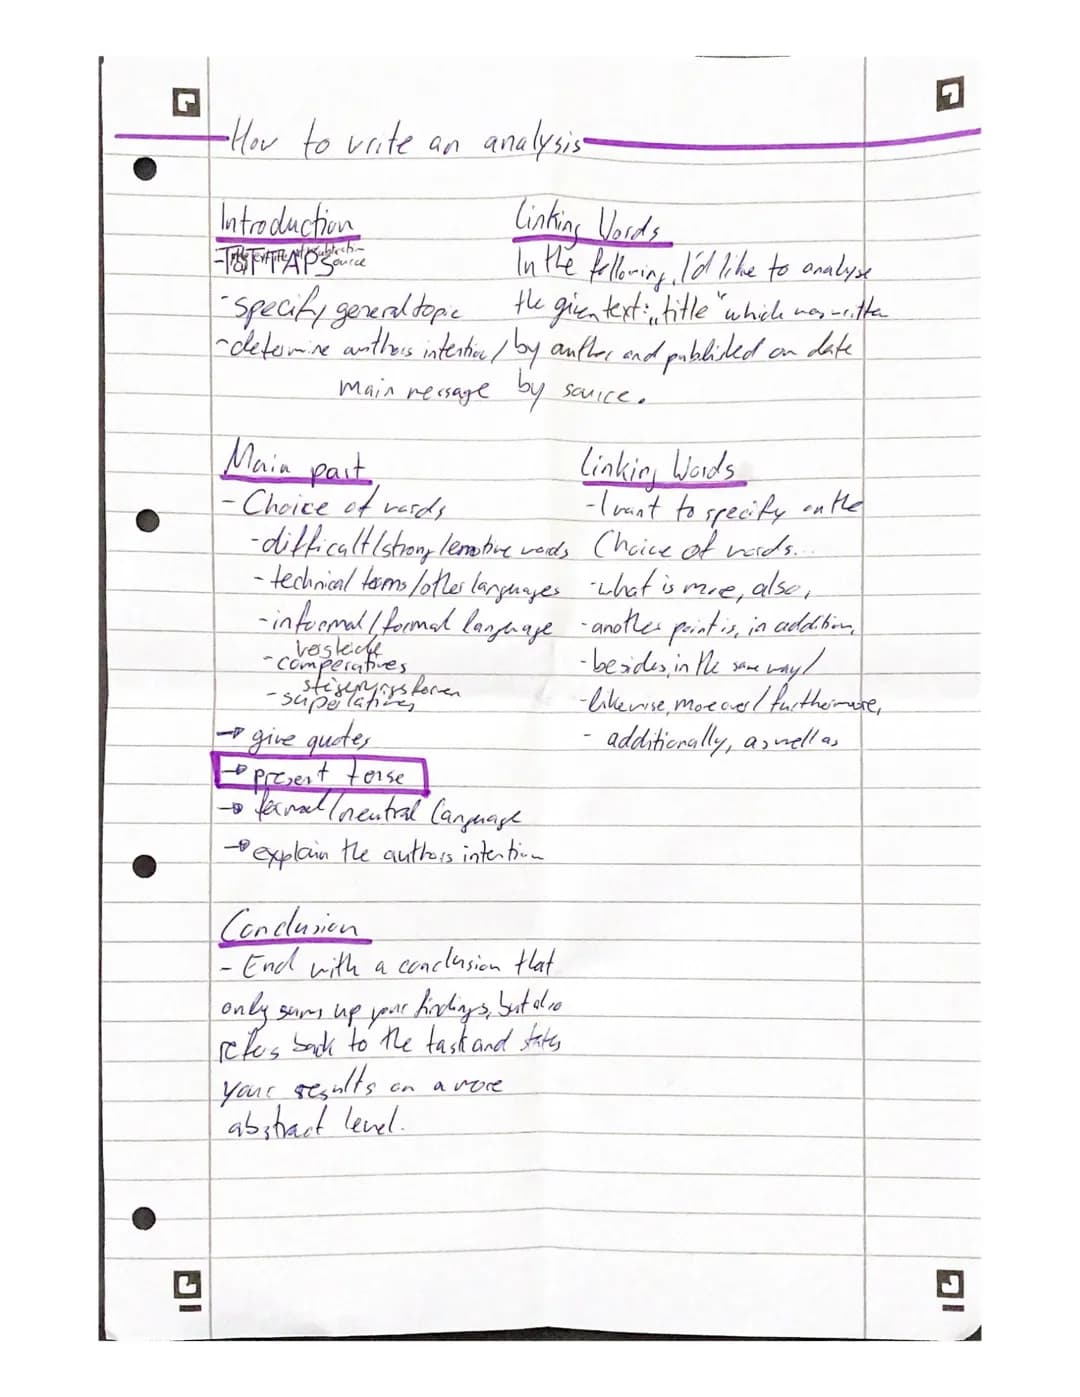 How to write an analysis
Introduction
- TSTTAPS
source
- specify general topic
- determine authors intention /
main message
Linking Words
In the following, I'd like to analyse
the given text: „title" which was written
by author and published on date
by source.
Main part
- Choice of words
- difficult/strong/emotive words
- technical terms/other languages
- informal/formal language
Vergleiche
- comperatives
steigerungsformen
- superlatives
→ give quotes
→ present tense
→ formal/neutral language
→ explain the authors intention
Linking Words
- I want to specify on the
Choice of words...
- what is more, also,
- another point is, in addition,
- besides, in the same way/
- likewise, moreover/furthermore,
- additionally, as well as
Conclusion
- End with a conclusion that
only sums up your findings, but also
refers back to the task and states
your results on a more
abstract level.